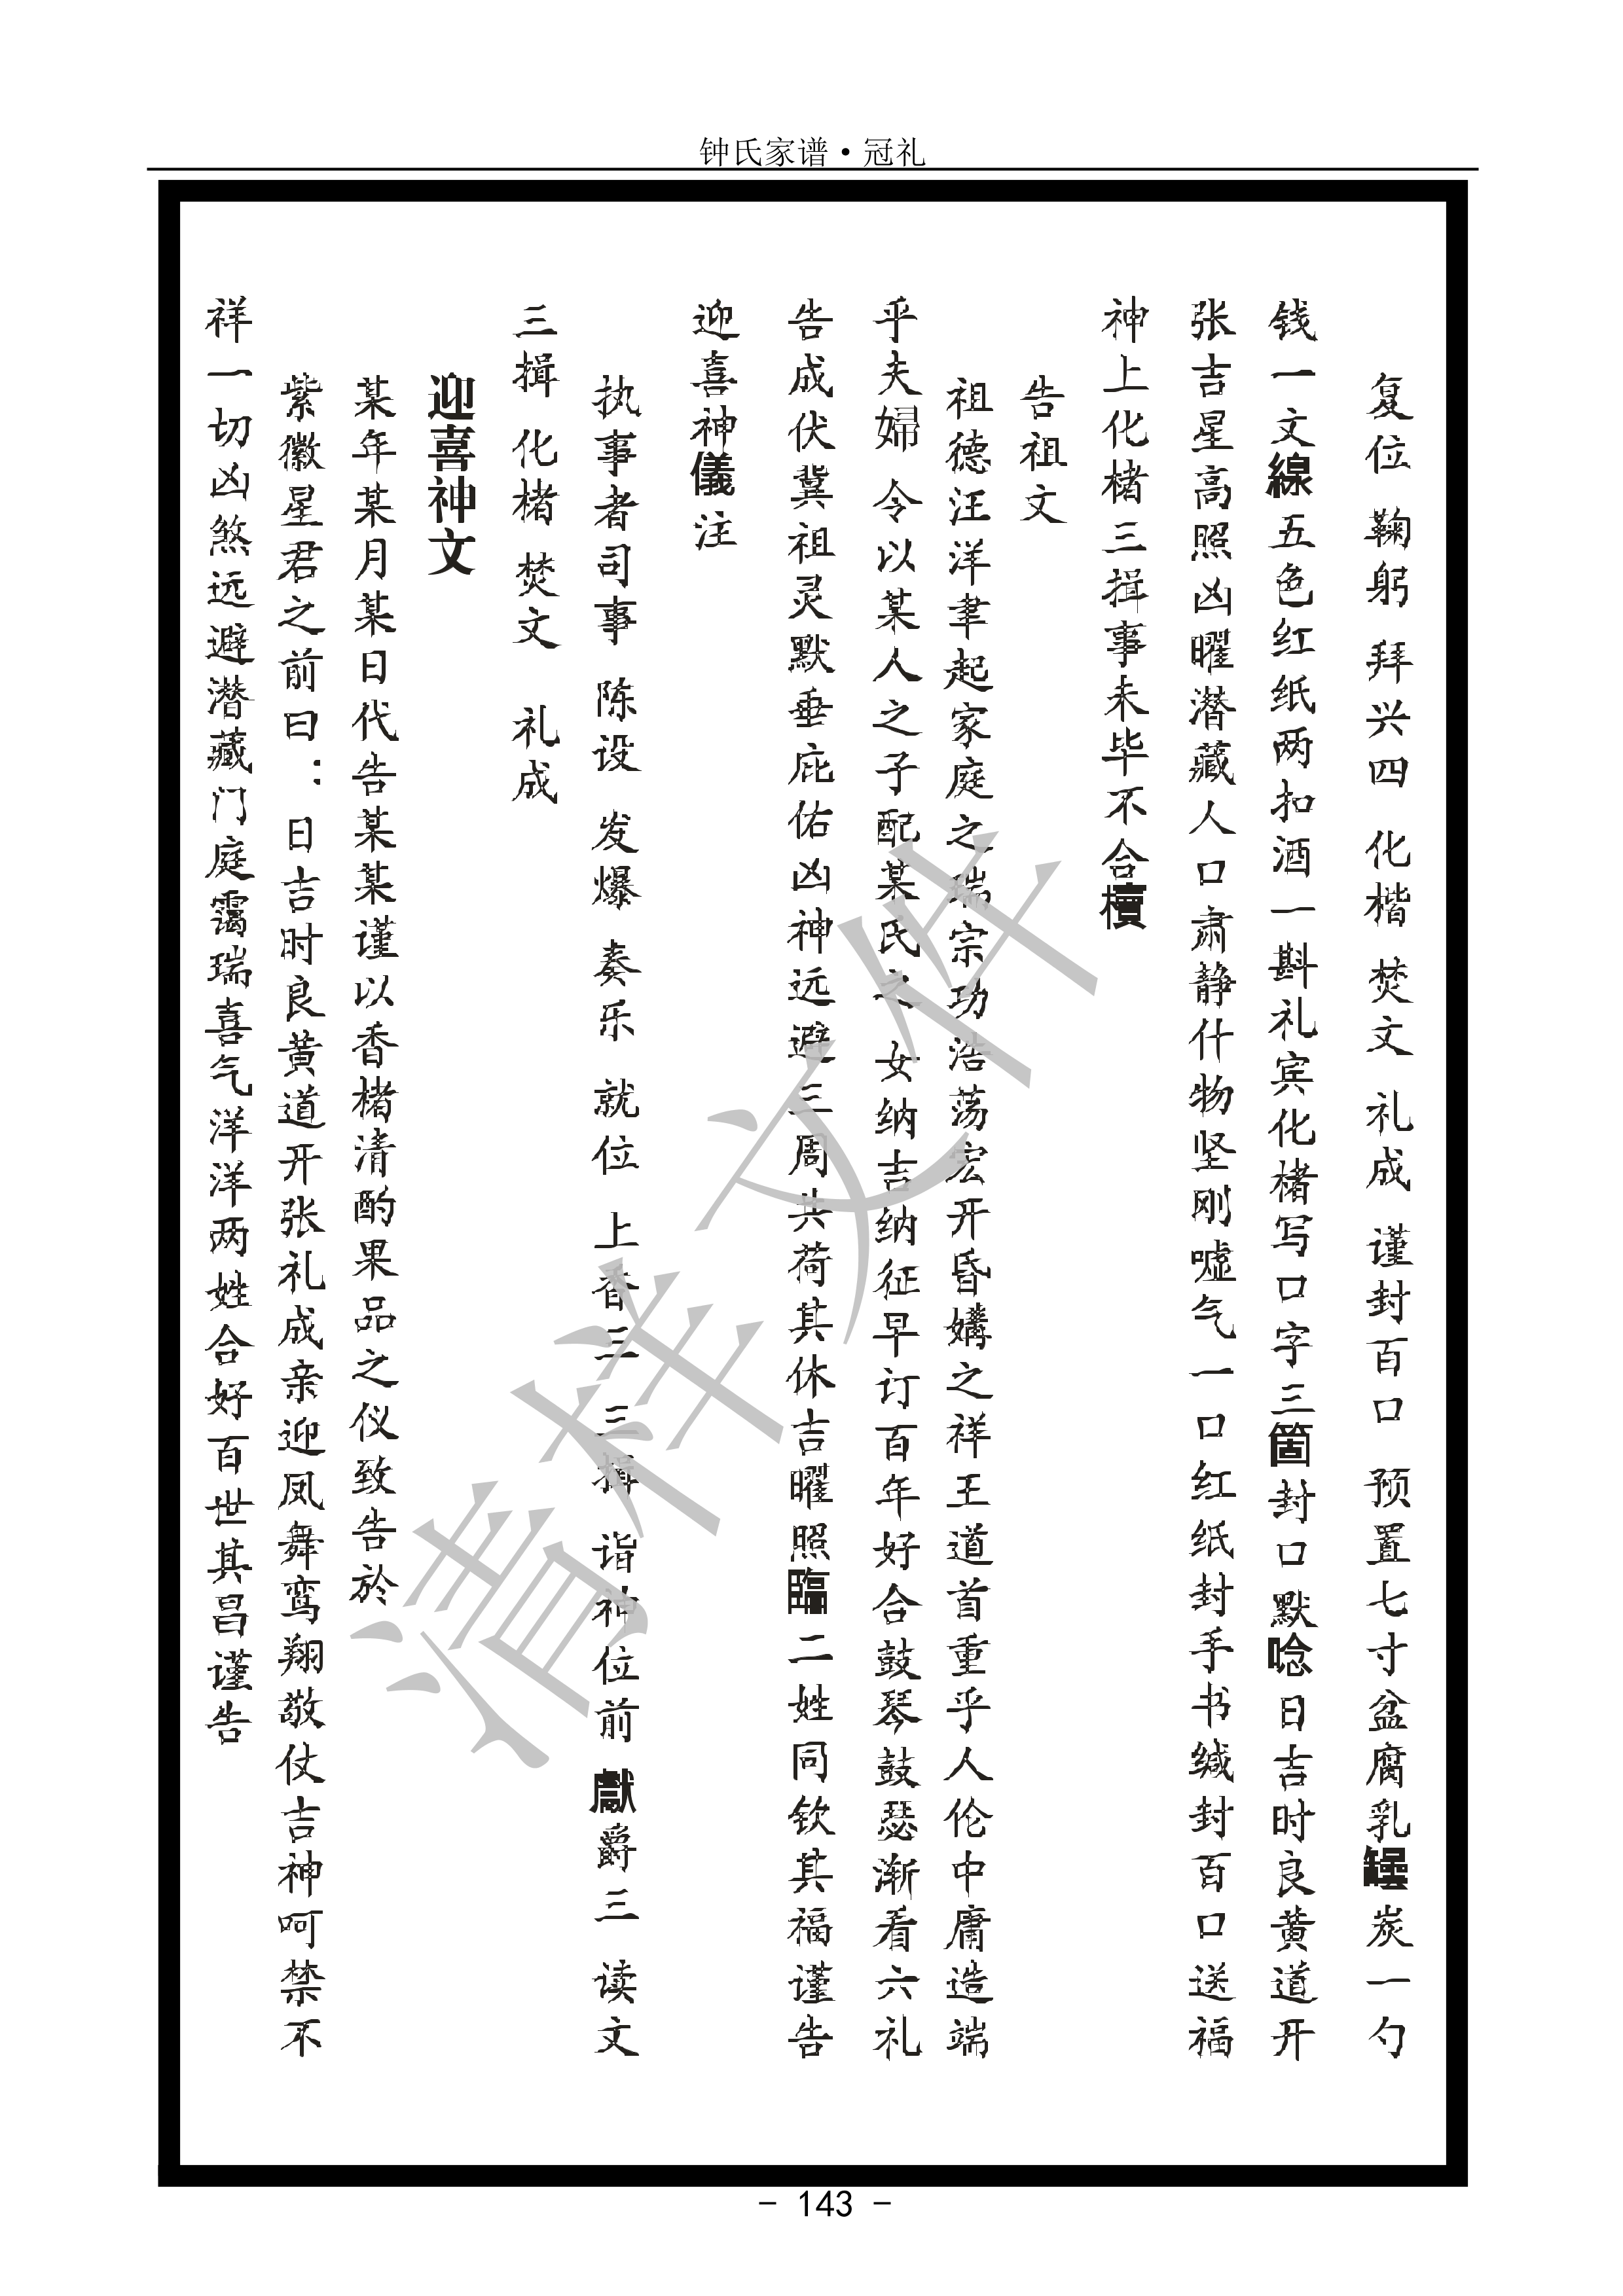 钟氏家谱·冠礼
复位 鞠躬 拜兴四 化楮 焚文 礼成 谨封百口 预置七寸盆腐乳罎炭一勺
钱一文線五色红纸两扣酒一斟礼宾化楮写口字三箇封口默唸日吉时良黄道开
张吉星高照凶曜潜藏人口肃静什物坚刚嘘气一口红纸封手书缄封百口送福
神上化楮三揖事未毕不合櫝
告祖文
祖德汪洋聿起家庭之瑞宗功浩荡宏开昏媾之祥王道首重乎人伦中庸造端
乎夫婦 令以某人之子配某氏之 女纳吉纳征早订百年好合鼓琴鼓瑟渐看六礼
告成伏冀祖灵默垂庇佑凶神远避三周共荷其休吉曜照臨二姓同钦其福谨告
迎喜神儀注
执事者司事 陈设 发爆 奏乐 就位 上香三 三揖 诣神位前 獻爵三 读文
三揖 化楮 焚文 礼成
迎喜神文
某年某月某日代告某某谨以香楮清酌果品之仪致告於
紫徽星君之前曰：日吉时良黄道开张礼成亲迎凤舞鸾翔敬仗吉神呵禁不
祥一切凶煞远避潜藏门庭霭瑞喜气洋洋两姓合好百世其昌谨告
清样文件
- 143 -